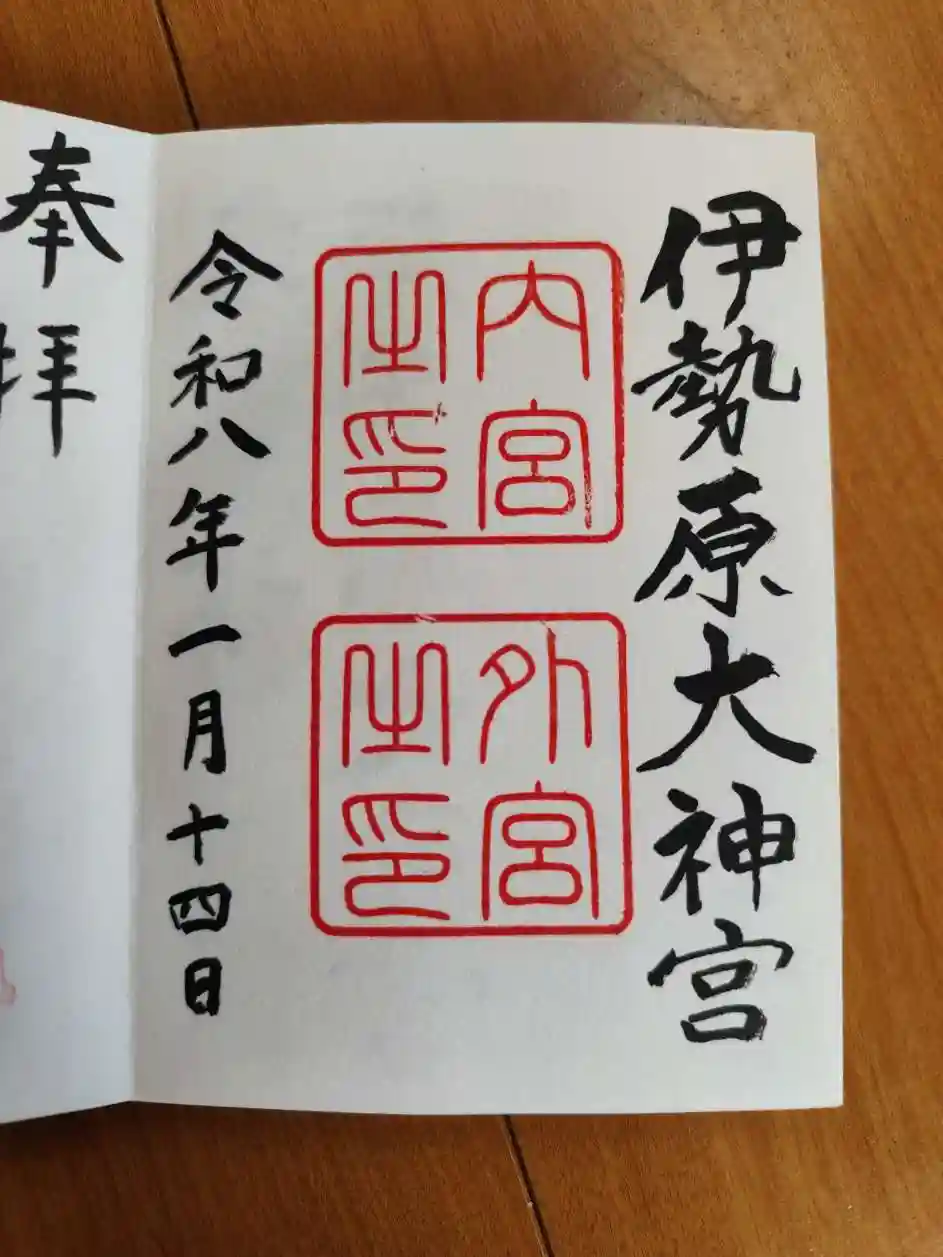 伊勢原大神宮
内宮
之印
外宮
之印
令和八年一月十四日
奉拝